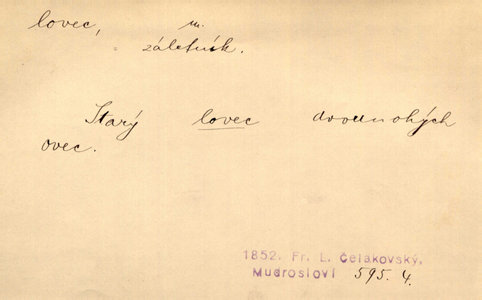 lovec, m.
= záletník.
Starý lovec dvounohých
ovec.
1852. Fr. L. Čelakovský,
Mudrosloví 595. 4.